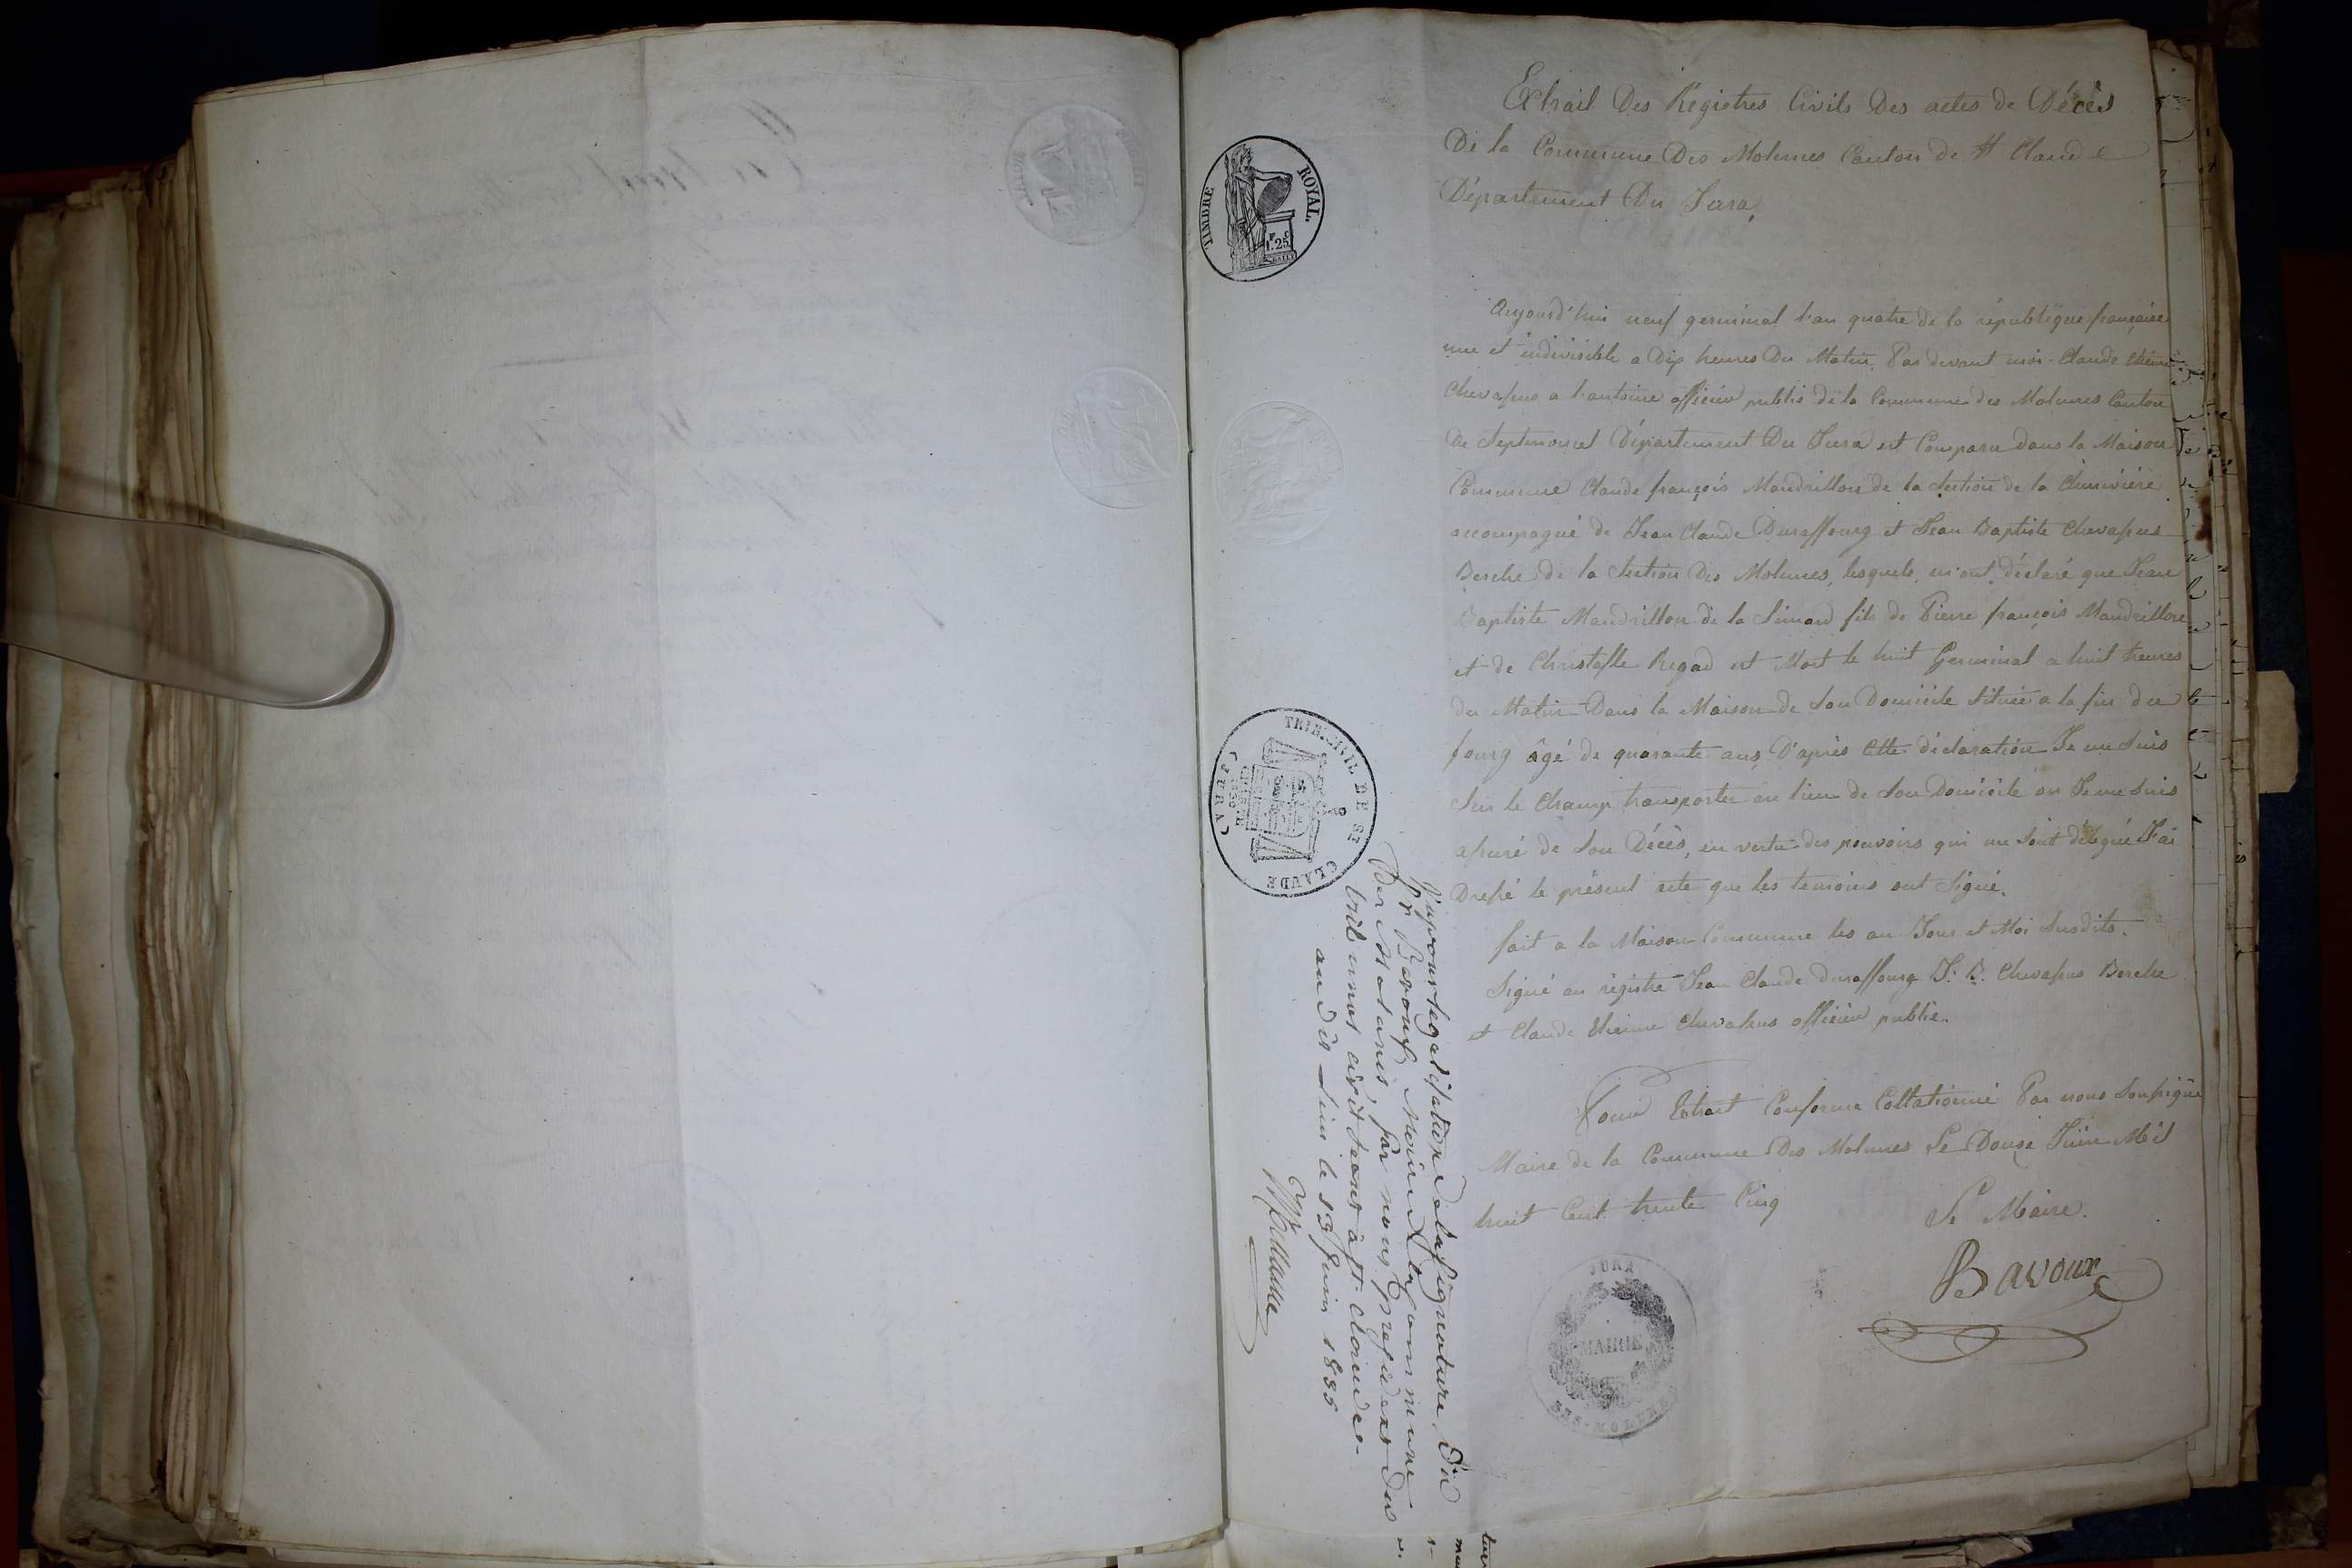 Extrait Des Régistres Civils Des actes de Décès
De la Commune Des Molunes Canton de St Claude
Département Du Jura,
TIMBRE ROYAL.
1.25
Aujourd'hui neuf germinal l'an quatre de la république française
une et indivisible a Dix heures Du Matin, Par devant moi Claude Etienne
Chevassus a l'antoine officier public de la Commune des Molunes Canton
De Septmoncel Département Du Jura est Comparu dans la Maison
Commune Claude françois Mandrillon de la Section de la
accompagné de Jean Claude Duraffourg et Jean Baptiste Chevassus
Berche de la Section Des Molunes, lesquels, m'ont, déclaré que Jean
Baptiste Mandrillon de la Simard fils de Pierre françois Mandrillon
et de Christofle Regad est Mort le huit Germinal a huit heures
du Matin Dans la Maison de Son Domicile Située a la fin du
fourg âgé de quarante ans, D'après Cette déclaration Je me Suis
Sur le Champ transporter au lieu de Son Domicile ou Je me Suis
assuré de Son Décès, en vertu des pouvoirs qui me Sont délégué J'ai
Dressé le présent acte que les temoins ont Signé.
fait a la Maison Commune les an Jour et Moi Susdits.
Signé au régistre Jean Claude duraffourg J. B. Chevassus Berche
et Claude Etienne Chevassus officier public.
Pour Extrait Conforme Collationné Par nous Soussigné
Maire de la Commune Des Molunes Le Douze Juin Mil
huit Cent trente Cinq
Le Maire.
Bavoux
JURA
MAIRIE
DES MOLUNES
TRIB. CIVIL DE ST CLAUDE (JURA)
Vu pour légalisation de la signature du
Sr Bavoux Maire de la commune
des Molunes, par nous Président du
tribunal civil séant à St. Claude
au dit lieu le 13 Juin 1835